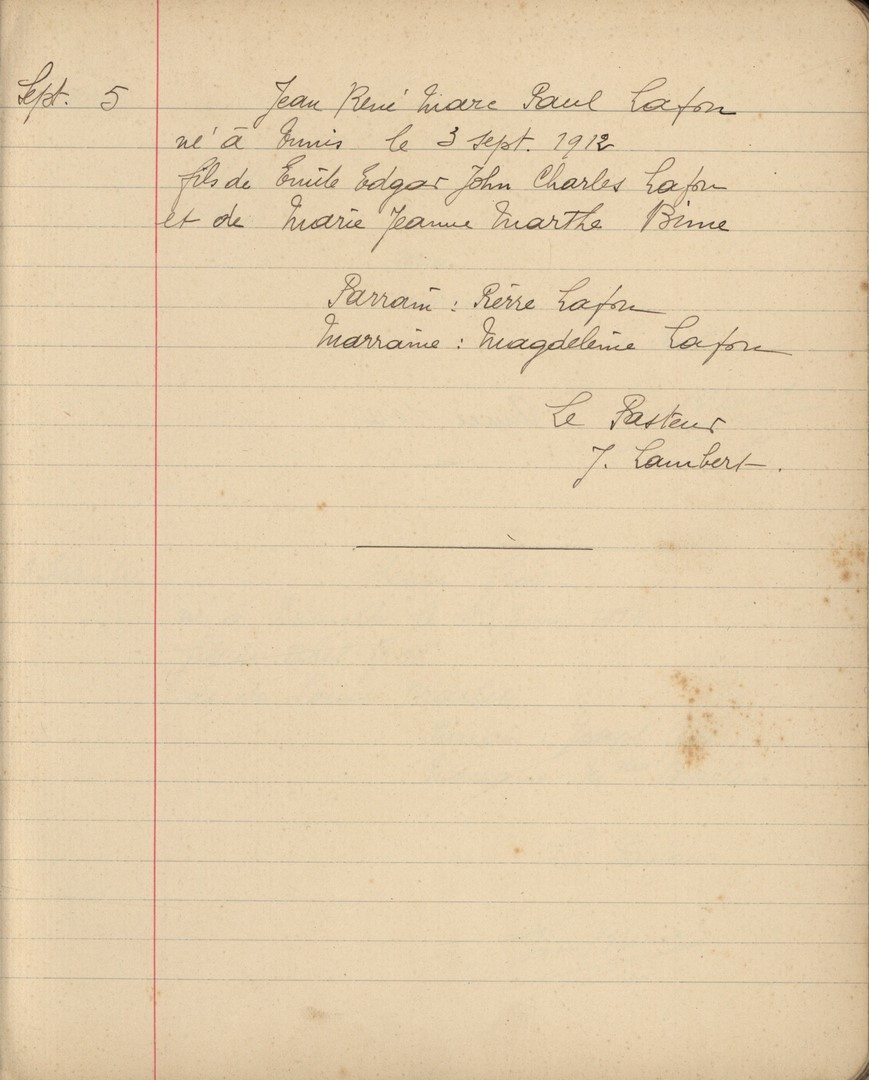 Sept. 5 Jean René Marc Paul Lafon
né à Tunis le 3 sept. 1912
fils de Emile Edgar John Charles Lafon
et de Marie Jeanne Marthe
Parrain : Pierre Lafon
Marraine : Magdeleine Lafon
Le Pasteur
J. Lambert.